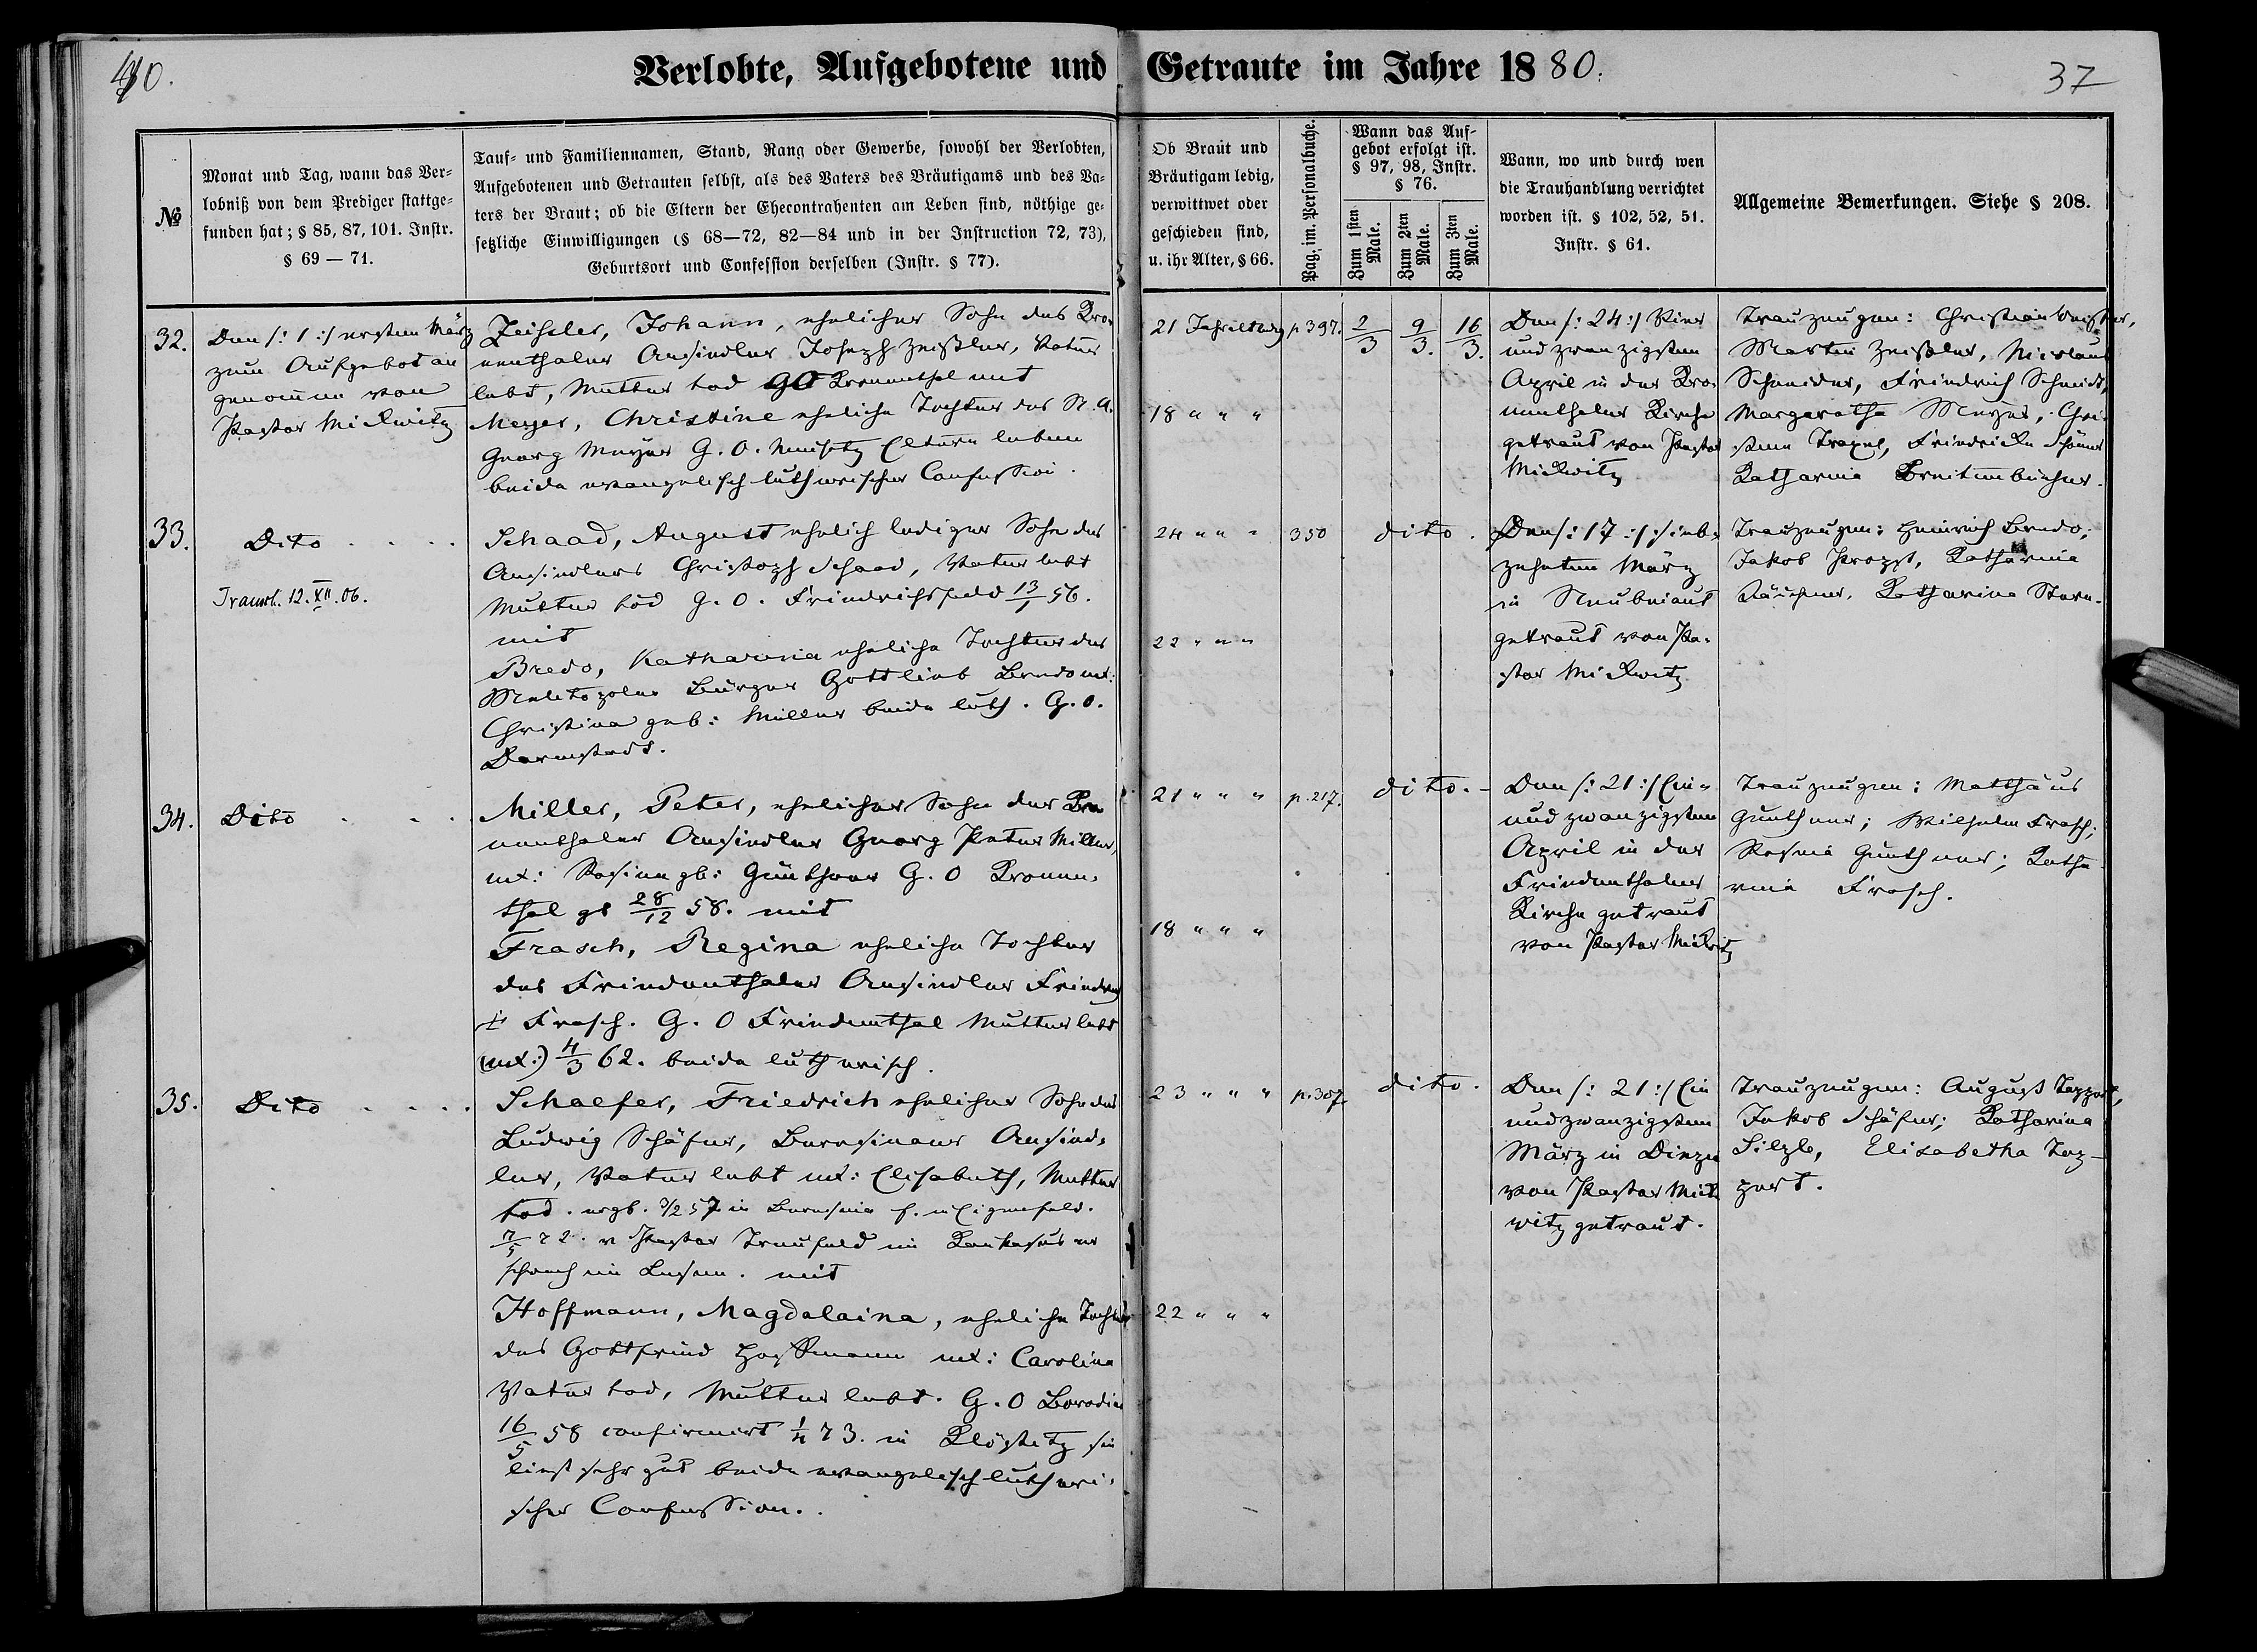 40.
Verlobte, Aufgebotene und Getraute im Jahre 1880.
37
№
Monat und Tag, wann das Ver-
lobniß von dem Prediger stattge-
funden hat; § 85, 87, 101. Instr.
§ 69 — 71.
Tauf- und Familiennamen, Stand, Rang oder Gewerbe, sowohl der Verlobten,
Aufgebotenen und Getrauten selbst, als des Vaters des Bräutigams und des Va-
ters der Braut; ob die Eltern der Ehecontrahenten am Leben sind, nöthige ge-
setzliche Einwilligungen (§ 68—72, 82—84 und in der Instruction 72, 73),
Geburtsort und Confession derselben (Instr. § 77).
Ob Braut und
Bräutigam ledig,
verwittwet oder
geschieden sind,
u. ihr Alter, § 66.
Pag. im. Personalbuche.
Wann das Auf-
gebot erfolgt ist.
§ 97, 98, Instr.
§ 76.
Zum 1sten Male.
Zum 2ten Male.
Zum 3ten Male.
Wann, wo und durch wen
die Trauhandlung verrichtet
worden ist. § 102, 52, 51.
Instr. § 61.
Allgemeine Bemerkungen. Siehe § 208.
32.
Den /: 1 :/ ersten März
zum Aufgebot an
genommen von
Pastor Mickwitz
Zeissler, Johann, ehelicher Sohn des Kro-
nenthaler Ansiedler Joseph Zeißler, Vater
lebt, Mutter tod GO Kronenthal mit
Meyer, Christine eheliche Tochter des N. A.
Georg Meyer G. O. Neusatz Eltern leben
beide evangelisch lutherischer Confession.
21 Jahr ledig
18 " " "
p 397.
2/3
9/3.
16/3.
Den /: 24 :/ Vier
und zwanzigsten
April in der Kro-
nenthaler Kirche
getraut von Pastor
Mickwitz
Trauzeugen: Christian
Martin Zeißler, Nicolaus
Schneider, Friedrich Schmidt,
Margaretha Meyer, Chri-
stine Friedricke
Katharina Breitenbücher.
33.
Dito . . . .
Transl. 12. XII. 06.
Schaad, August ehelich lediger Sohn des
Ansiedlers Christoph Schaad, Vater lebt
Mutter tod G. O. Friedrichsfeld 13/1 56.
mit
Bredo, Katharina eheliche Tochter des
Melitopoler Bürger Gottlieb Bredo ux:
Christina geb: Müller beide luth. G. O.
Darmstadt.
24 " " "
22 " " "
350
dito.
Den /: 17 :/ sieb-
zehnten März
in
getraut von Pa-
stor Mickwitz
Trauzeugen: Heinrich Bredo;
Jakob Propst, Katharina
Katharina
34.
Dito . . .
Miller, Peter, ehelicher Sohn der Kro-
nenthaler Ansiedler Georg Peter Miller,
ux: Rosina gb: Günthner G. O Kronen-
thal gb 28/12 58. mit
Frasch, Regina eheliche Tochter
des Friedenthaler Ansiedler Friedrich
Frasch. G. O Friedenthal Mutter lebt
(ux:) 4/3 62. beide lutherisch.
21 " " "
18 " " "
p. 217.
dito.
Den /: 21 :/ Ein-
und zwanzigsten
April in der
Friedenthaler
Kirche getraut
von Pastor Mickwitz
Trauzeugen: Matthäus
Günthner; Wilhelm Frasch;
Rosina Günthner; Katha-
rina Frasch.
35.
Dito . . . .
Schaefer, Friedrich ehelicher Sohn des
Ludwig Schäfer, Ansied-
ler, Vater lebt ux: Elisabeth, Mutter
tod. in Eigenfeld.
72. v Pastor im Kaukasus er
schwach im Lesen. mit
Hoffmann, Magdalaina, eheliche Tochter
des Gottfried Hoffmann ux: Carolina
Vater tod, Mutter lebt. G. O Borodin
16/5 58 confirmirt 1/4 73. in Klöstitz sie
liest sehr gut beide evangelisch lutheri-
scher Confession.
23 " " "
22 " " "
p. 307
dito.
Den /: 21 :/ Ein
und zwanzigsten
März in
von Pastor Mick
witz getraut.
Trauzeugen: August Toppert,
Jakob Schäfer; Katharina
Silzle, Elisabetha Top-
pert.